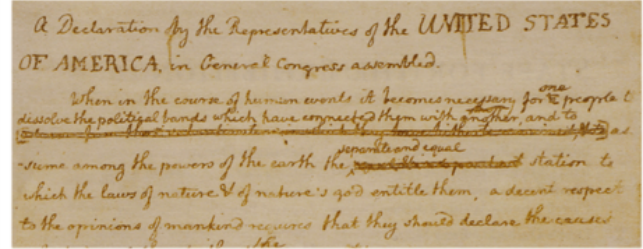 A Declaration by the Representatives of the UNITED STATES
OF AMERICA, in General Congress assembled.
When in the course of human events it becomes necessary for one people to
dissolve the political bands which have connected them with another, and to
as
-sume among the powers of the earth the separate and equal station to
which the laws of nature & of nature's god entitle them, a decent respect
to the opinions of mankind requires that they should declare the causes
the